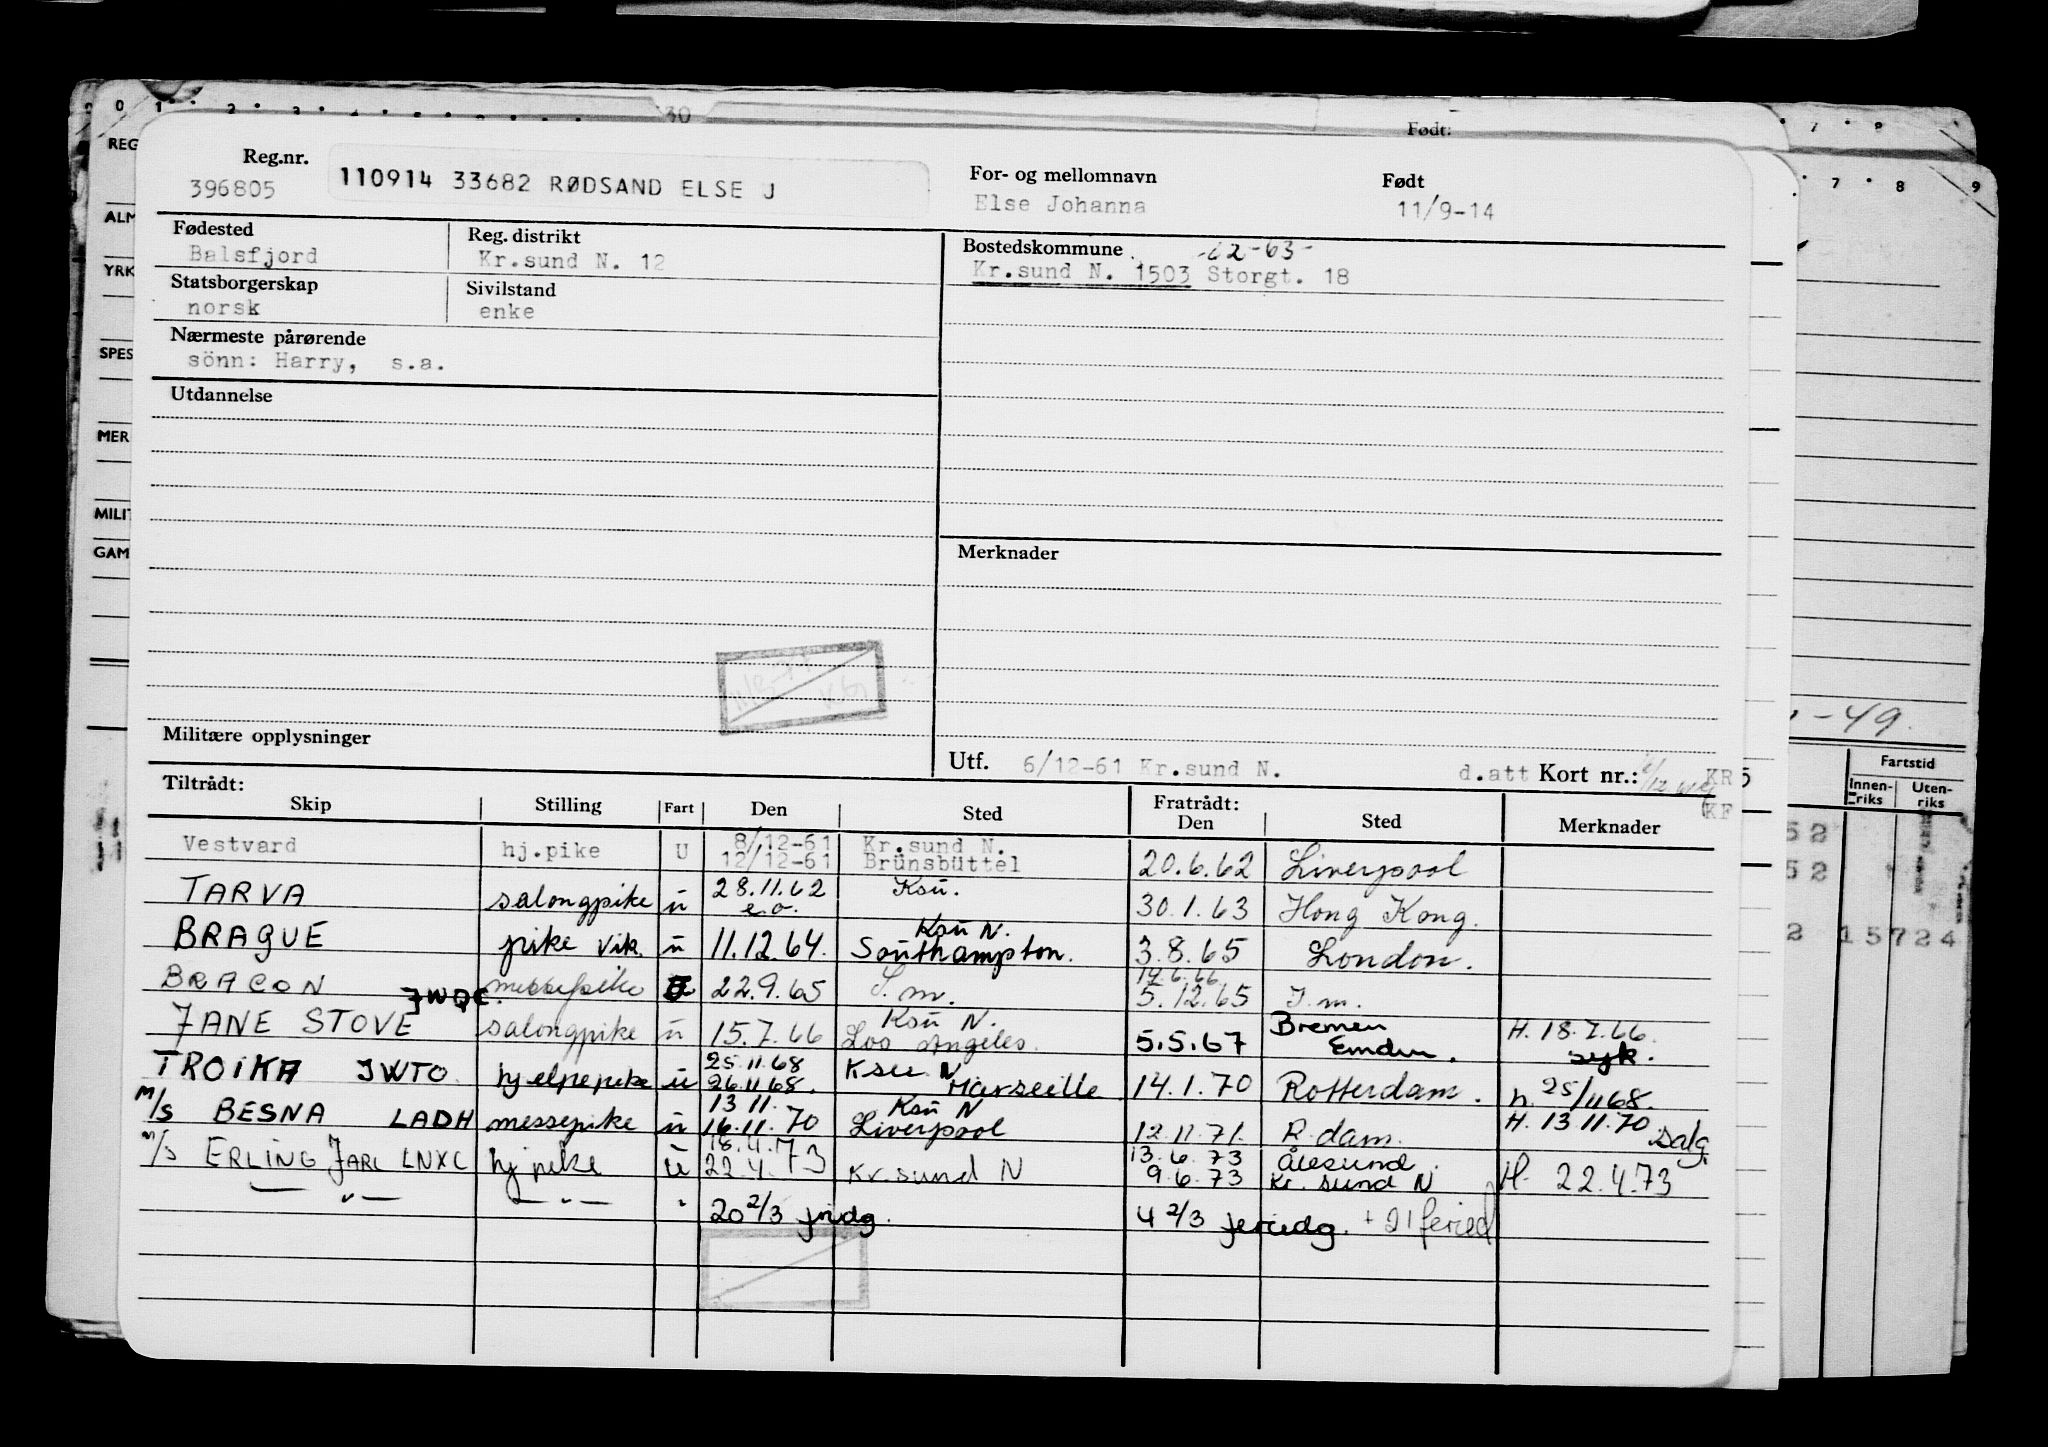 0 1 2 3 30 Født: 7 8
REG
ALM
YRK
SPES
MER
MILIT
GAM
7 8 9
Reg.nr. 396805
110914 33682 RØDSAND ELSE J
For- og mellomnavn Else Johanna
Født 11/9-14
Fødested Balsfjord
Reg. distrikt Kr.sund N. 12
Bostedskommune -62-63-
Kr.sund N. 1503 Storgt. 18
Statsborgerskap norsk
Sivilstand enke
Nærmeste pårørende
sönn: Harry, s.a.
Utdannelse
Merknader
Militære opplysninger
Utf. 6/12-61 Kr.sund N. d.att Kort nr.:
KR5
KF
-49.
Fartstid
Innenriks Utenriks
52
52
2 15724
Tiltrådt: Fratrådt:
Skip Stilling Fart Den Sted Den Sted Merknader
Vestvard hj.pike U 8/12-61 Kr.sund N.
12/12-61 Brünsbüttel 20.6.62 Liverpool
TARVA salongpike u 28.11.62 Ksu.
e.o. 30.1.63 Hong Kong.
BRAGUE pike vik. u 11.12.64. Ksu N. Southampton. 3.8.65 London.
BRACON messepike 22.9.65 S.m. 5.12.65 I.m.
JANE STOVE JWQE. salongpike u 15.7.66 Ksu N. Los Angeles. 5.5.67 Bremen Emden. H. 18.7.66 syk.
TROIKA JWTO. hjelpepike u 25.11.68 26.11.68. Ksu N Marseille 14.1.70 Rotterdam. h. 25/11 68.
M/S BESNA LADH messepike u 13 11. 16.11.70 Ksu N Liverpool 12.11.71. R.dam. H. 13 11.70 salg.
M/S ERLING JARL LNXC hj pike u 18.4.73 22.4. Kr.sund N 13.6.73 Ålesund
9.6.73 Kr. sund N H. 22.4.73
— " — — " — " 20 2/3 fridg. 4 2/3 feriedg. + 21 feried